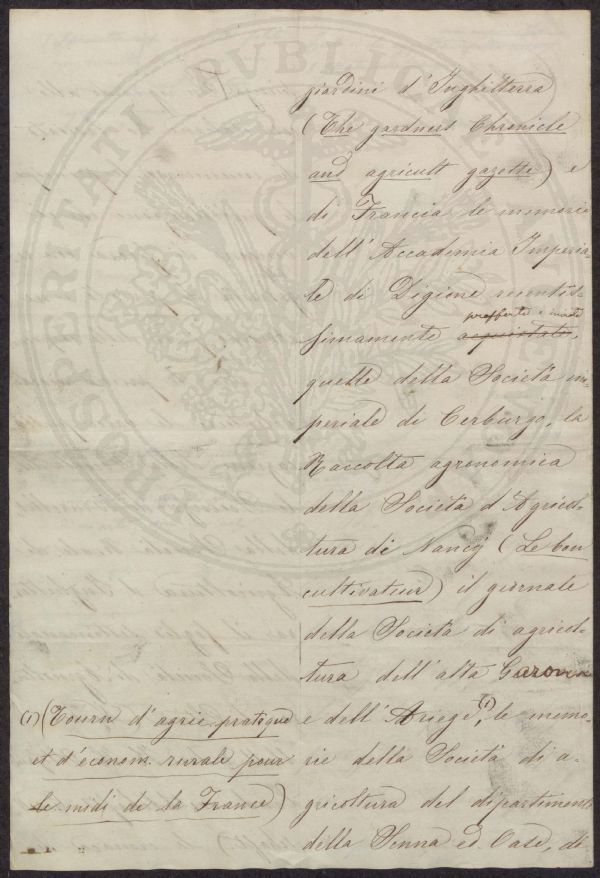 giardini d'Inghilterra
(The gardners Chronicle
and agricult gazette) e
di Francia le memorie
dell'Accademia Imperia-
le di Digione
prefferte e
simamente acquistate,
quelle della Società im-
periale di Cerburgo, la
Raccolta agronomica
della Società d'Agricol-
tura di Nancy (Le bon
cultivateur) il giornale
della Società di agricol-
tura dell'alta Garonna
e dell'Ariege, (1) le memo-
rie della Società di a-
gricoltura del dipartimento
della Senna ed Oase, di
(1) (Journ d'agric. pratique
et d'économ. rurale pour
le midi de la France)
PROSPERITATI PUBLICAE AU